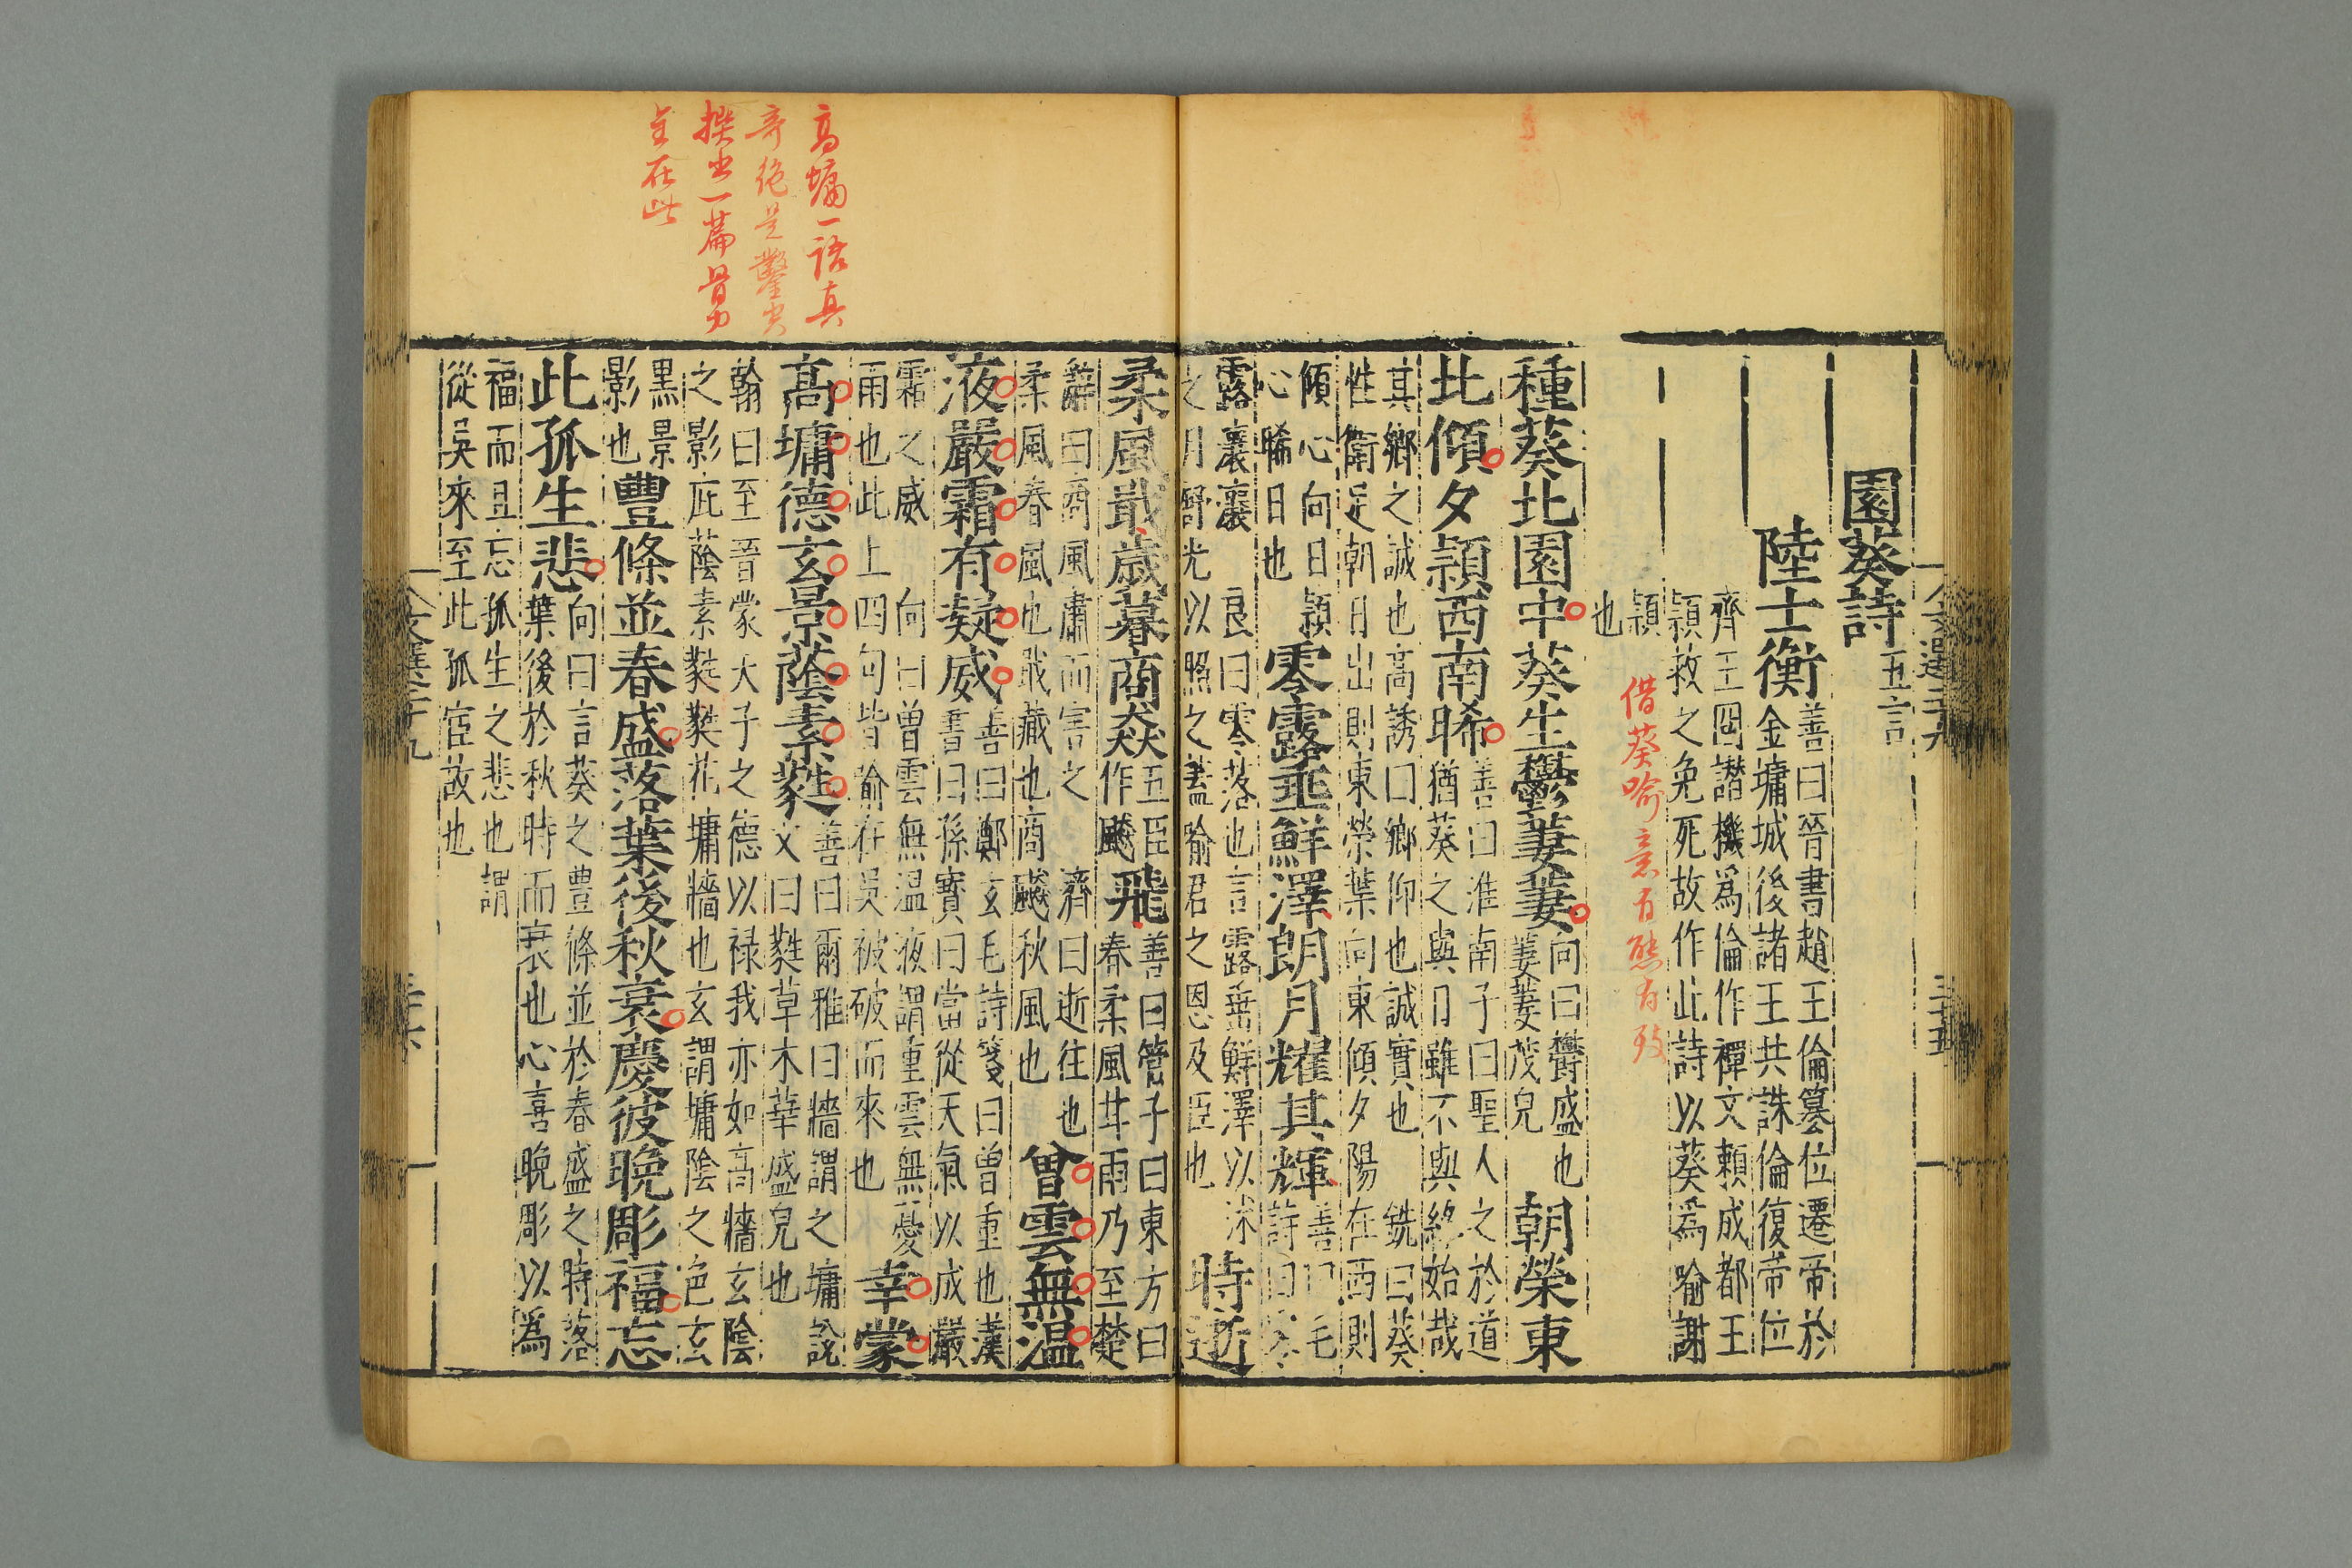 園葵詩五言
陸士衡善曰晉書趙王倫篡位遷帝於
金墉城後諸王共誅倫復帝位
齊王冏譖機爲倫作禪文賴成都王
穎救之免死故作此詩以葵爲喻謝
穎
也
借葵喻意有態有致
種葵北園中葵生鬱萋萋向曰欝盛也
萋萋茂皃朝榮東
北傾夕穎西南晞善曰淮南子曰聖人之於道
猶葵之與日雖不與終始哉
其鄉之誠也高誘曰鄉仰也誠實也銑曰葵
性衛足朝日出則東榮葉向東傾夕陽在西則
傾心向日穎
心晞日也零露垂鮮澤朗月耀其輝善曰毛
詩曰零
露瀼瀼良曰零落也言露垂鮮澤以沫
之月舒光以照之蓋喻君之恩及臣也時逝
柔風戢歲暮商猋五臣
作飈飛善曰管子曰東方曰
春柔風甘雨乃至楚
辭曰商風肅而害之濟曰逝往也
柔風春風也戢藏也商飈秋風也曾雲無温
液嚴霜有凝威善曰鄭玄毛詩箋曰曾重也漢
書曰孫寳曰當從天氣以成嚴
霜之威向曰曾雲無温液謂重雲無憂
雨也此上四句皆喻在吳被破而來也幸蒙
髙墉德玄景蔭素蕤善曰爾雅曰牆謂之墉說
文曰蕤草木華盛皃也
翰曰至晉蒙天子之德以禄我亦如高牆玄陰
之影庇蔭素蕤蕤花墉牆也玄謂墉陰之色玄
黒景
影也豐條並春盛落葉後秋衰慶彼晚彫福忘
此孤生悲向曰言葵之豊條並於春盛之時落
葉後於秋時而衰也心喜晚彫以爲
福而且忘孤生之悲也謂
從吳來至此孤宦故也
高墉一語真
奇絶是鑿突
撰出一篇骨力
全在此